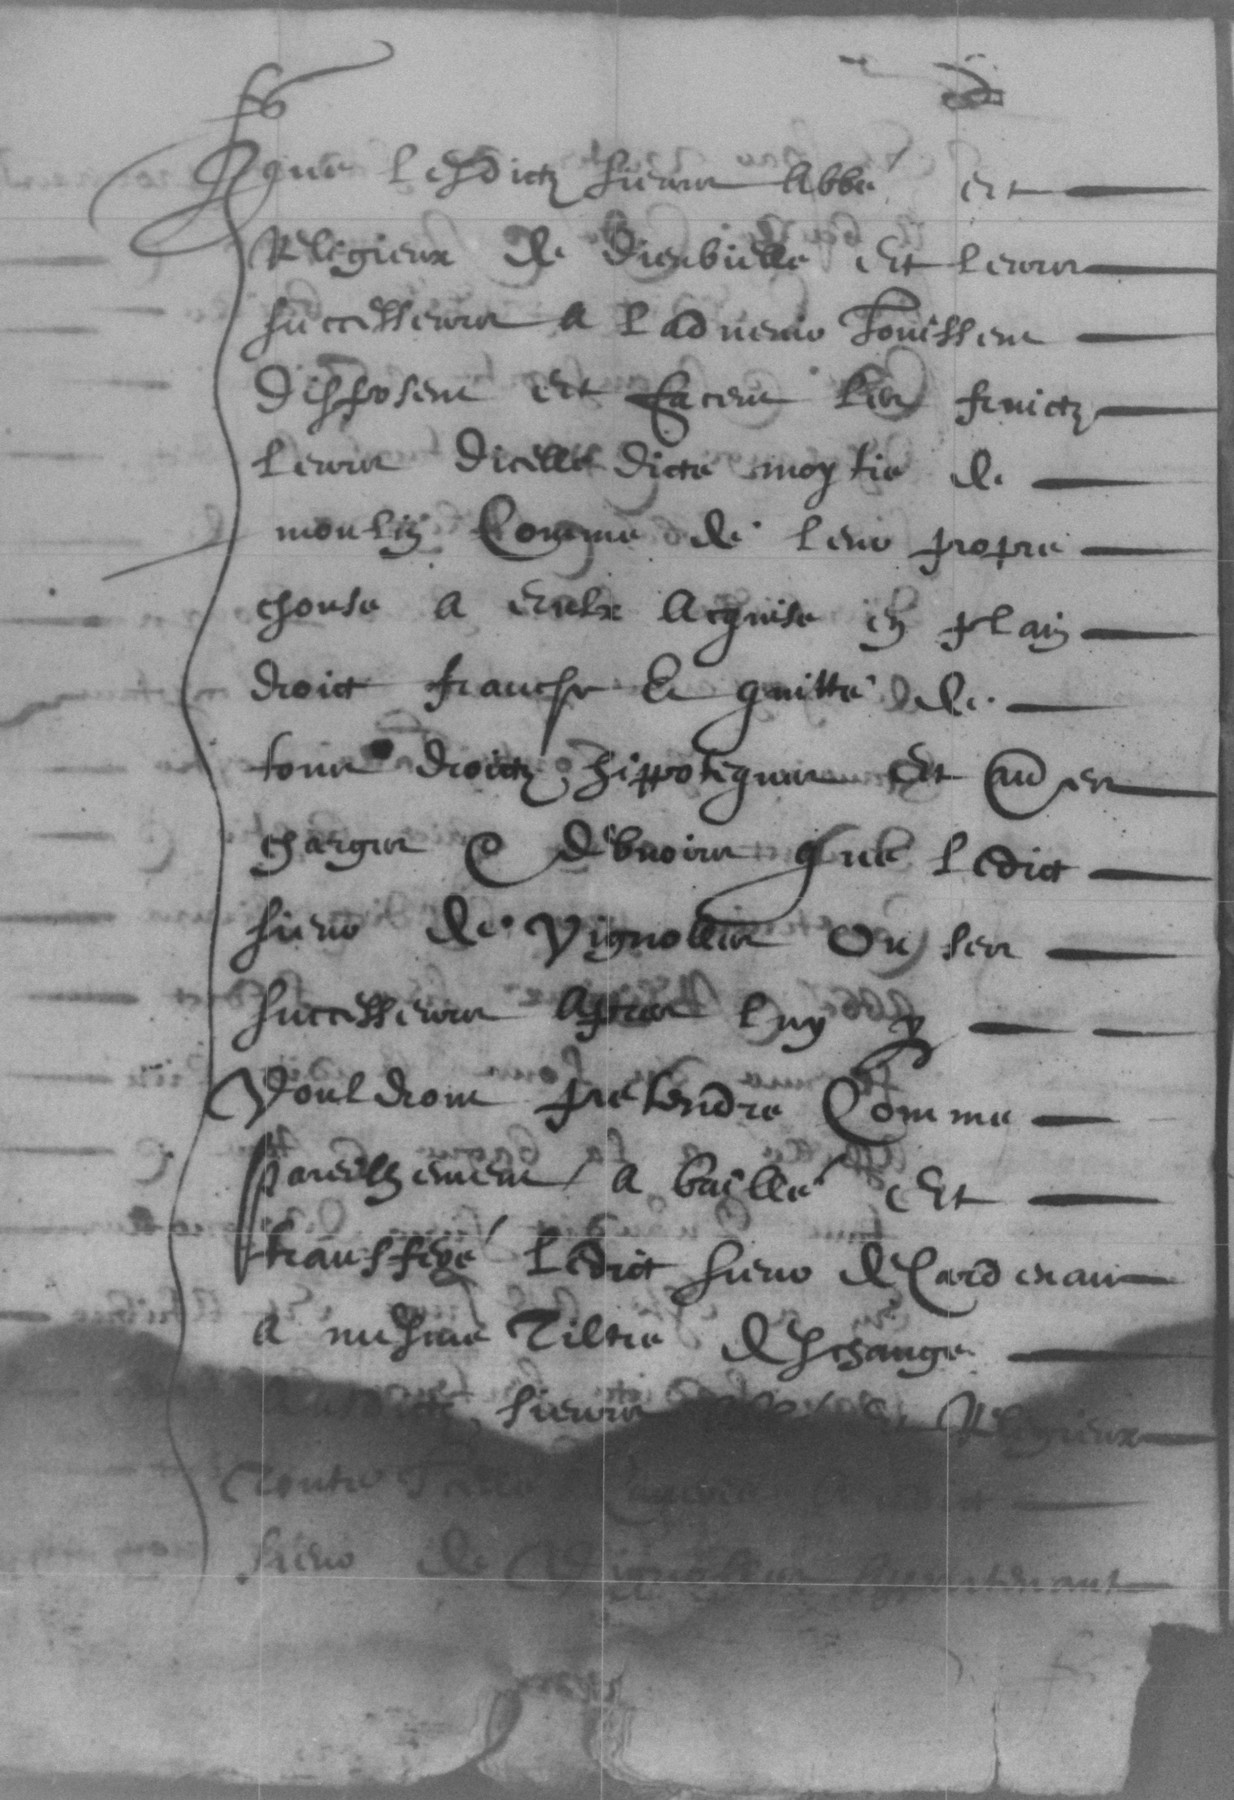 que lesdictz sieurs Abbé et
Religieux de dieubville et leurs
successeurs a ladvenir Jouissent
disposent et facent les fruictz
leurs dicelle dicte moytie de
moulin Comme de leur propre
chouse a eulx Acquise en plain
droict franche et quitte de
tous droictz hippotiques et aultres
charges et debvoirs que ledict
sieur de Vignolles Ou ses
successeurs Apres luy y
Vouldront pretendre Comme
Pareillement a baillé et
transferé ledict sieur de
a mesme Tiltre deschange
sieurs Religieux
Contre
sieur de Vignolles Appartenant